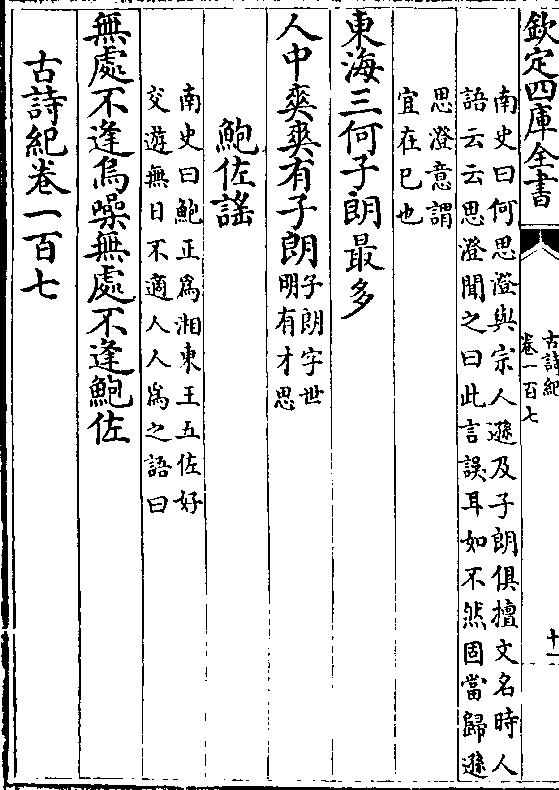 欽定四庫全書
古詩紀
卷一百七
十一
南史曰何思澄與宗人遜及子朗俱擅文名時人
語云云思澄聞之曰此言誤耳如不然固當歸遜
思澄意謂
宜在己也
東海三何子朗最多
人中爽爽有子朗
子朗字世
明有才思
鮑佐謡
南史曰鮑正為湘東王五佐好
交遊無日不適人人為之語曰
無處不逢烏噪無處不逢鮑佐
古詩紀卷一百七